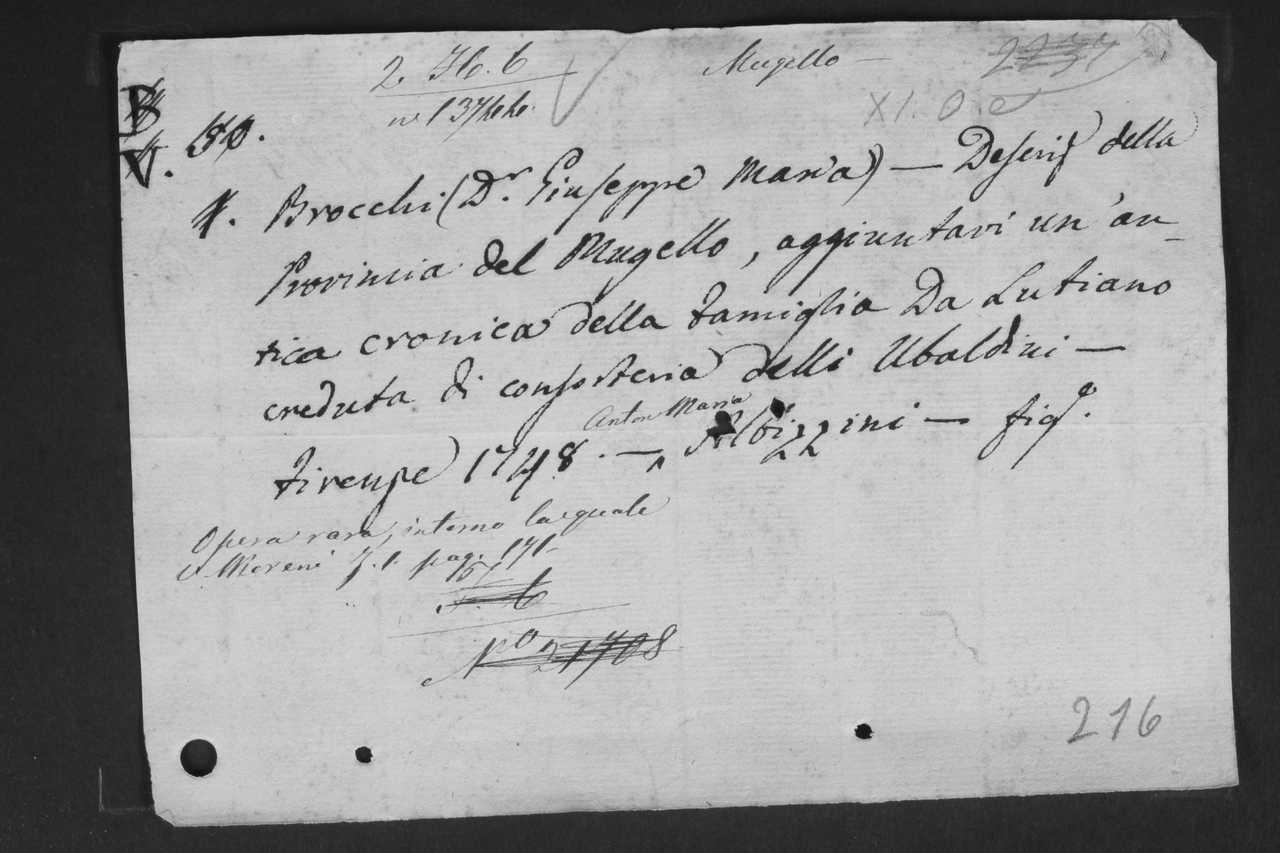 2 76. 6
Mugello —
2237
XI. O. e
V. 50.
4. Brocchi (Dr. Giuseppe Maria) — Descriz della
Provincia del Mugello, aggiuntavi un' an-
tica cronica della famiglia Da Lutiano
creduta di consorteria delli Ubaldini —
Anton Maria
Firenze 1748. — Albizzini — figo.
Opera rara, intorno la quale
v. Moreni T. 1. pag. 171-
No 21708
216